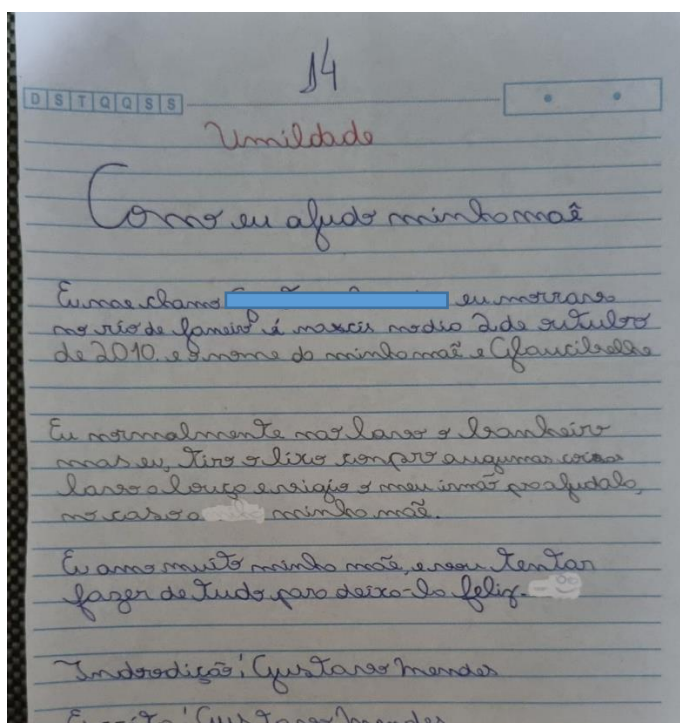 14
D S T Q Q S S
Umildade
Como eu ajudo minha maê
Eu mae chamo eu morrava
no rio de janeiro é nascis no dia 2 de outubro
de 2010. e o nome da minha maê e
Eu normalmente nao lavo o banheiro
mas eu, tiro o lixo conpro augumas coisas
lavo a louça e vigio o meu irmão pra ajudala,
no caso a minha mãe.
Eu amo muito minha mãe, e vou tentar
fazer de tudo para deixa-la feliz.
Indrodição: Gustavo Mendes
Gustavo Mendes